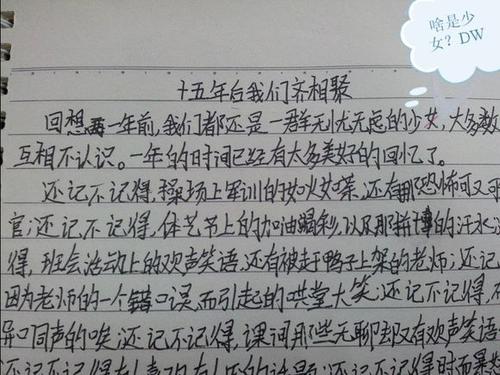 啥是少
女？DW
十五年后我们齐相聚
回想两一年前,我们都还是一群无忧无虑的少女,大多数
互相不认识。一年的时间已经有太多美好的回忆了。
还记不记得,操场上军训的如火如荼,还有那恐怖可又
官;还记不记得,体艺节上的加油喝彩,以及那拼搏的汗水
得,班会活动上的欢声笑语,还有被赶鸭子上架的老师;还记
因为老师的一个错口误而引起的哄堂大笑;还记不记得,
异口同声的唉;还记不记得,课间那些无聊却又有欢声笑语
还记不记得
的话题;还记不记得